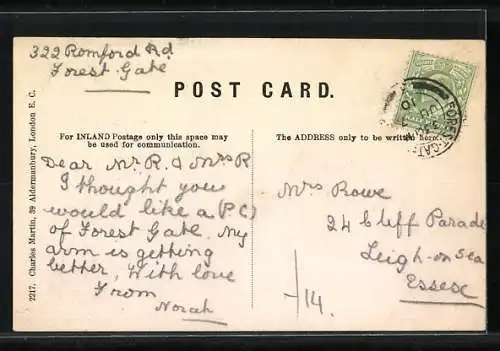 322 Romford Rd
Forest Gate
POST CARD.
For INLAND Postage only this space may
be used for communication.
The ADDRESS only to be written here.
2217. Charles Martin, 39 Aldermanbury, London E. C.
Dear Mr R. & Mrs R
I thought you
would like a (P C)
of Forest Gate. My
arm is getting
better, With love
From
Norah
Mrs Rowe
24 Cliff Parade
Leigh-on Sea
Essex
FOREST-GATE
10